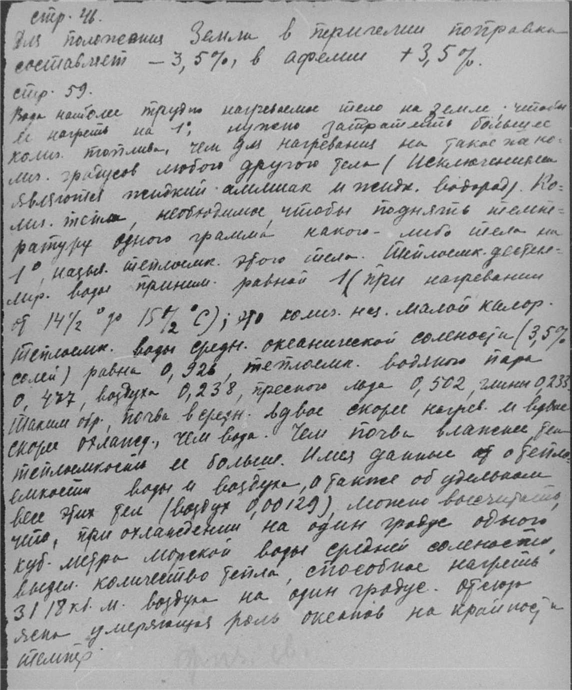 стр. 46.
Для положения Земли в перигелии поправка
составляет – 3,5%, в афелии +3,5%.
стр. 59.
Вода наиболее трудно нагреваемое тело на земле. чтобы
ее нагреть на 1°, нужно затратить большее
колич. топлива, чем для нагревания на такое же ко-
лич. градусов любого другого тела (Исключением
являются жидкий аммиак и жидк. водород). Ко-
лич. тепла, необходимое, чтобы поднять темпе-
ратуру одного грамма какого-либо тела на
1°, назыв. теплоемк. этого тела. Теплоемк. дестил-
лир. воды приним. равной 1 (при нагревании
от 14½° до 15½°C); это колич. наз. малой калор.
Теплоемк. воды средн. океанической солености (3,5%
солей) равна 0,926, теплоемк. водяного пара
0,477, воздуха 0,238, пресного льда 0,502, глины 0,233
Таким обр. почва в средн. вдвое скорее нагрев. и вдвое
скорее охлажд., чем вода. Чем почва влажнее тем
теплоемкость ее больше. Имея данные о тепло-
емкости воды и воздуха, а также об удельном
весе этих тел (воздух 0,00129), можно высчитать,
что, при охлаждении на один градус одного
куб. метра морской воды средней солености,
выдел. количество тепла, способное нагреть
3118 кб. м. воздуха на один градус. Отсюда
ясна умеряющая роль океанов на крайности
темпер.